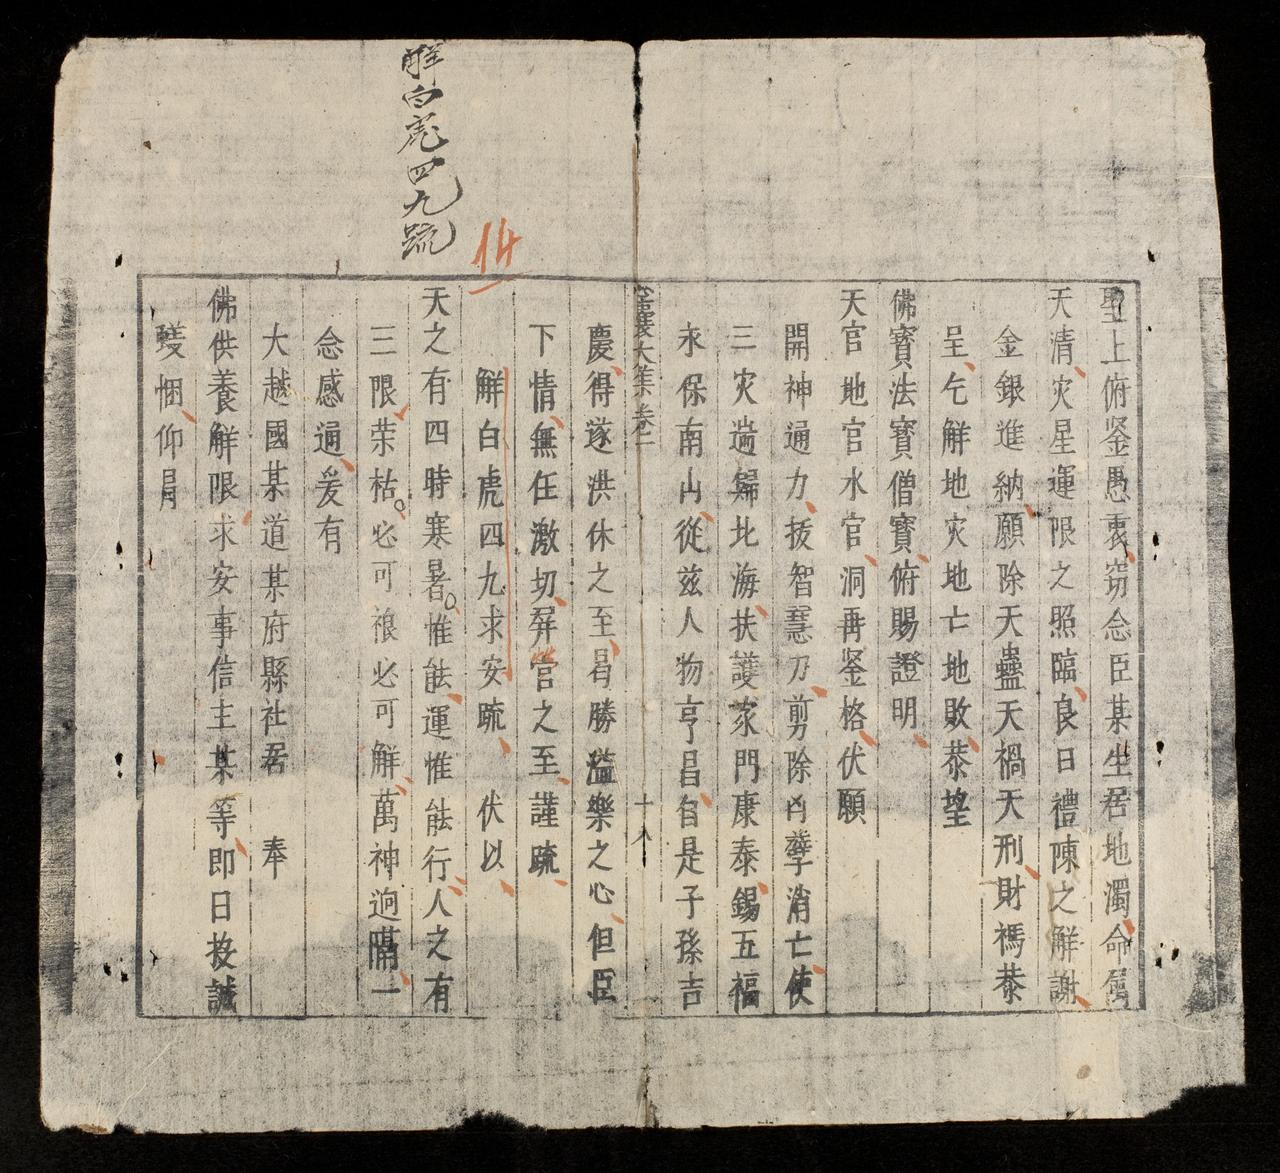 聖上俯鉴愚衷窃念臣某生居地濁命属
天清灾星運限之照臨良日禮陳之解謝
金銀進納願除天蠱天禍天刑財禡恭
呈乞解地灾地亡地敗恭望
佛寳法寳僧寳俯賜證明
天官地官水官洞再鉴格伏願
開神通力拔智慧刀剪除凶孽消亡使
三灾遄歸北海扶護家門康泰錫五福
永保南山從兹人物亨昌自是子孫吉
大集卷二
十八
慶得遂洪休之至曷勝溢樂之心但臣
下情無任激切屏营之至謹疏
解白虎四九求安疏 伏以
天之有四時寒暑惟能運惟能行人之有
三限荣枯必可禳必可解萬神迥隔一
念感通爰有
大越國某道某府縣社居 奉
佛供養解限求安事信主某等即日投誠
悃仰扃
解白虎四九疏
14